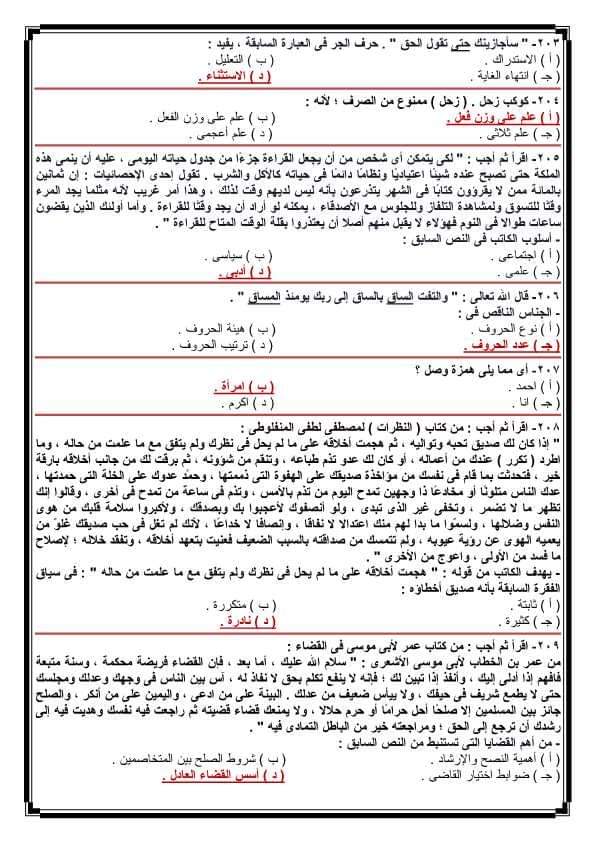 ٢٠٣- " سأجازينك حتى تقول الحق " . حرف الجر فى العبارة السابقة ، يفيد :
( أ ) الاستدراك . ( ب ) التعليل .
( جـ ) انتهاء الغاية . ( د ) الاستثناء .
٢٠٤- كوكب زحل . ( زحل ) ممنوع من الصرف ؛ لأنه :
( أ ) علم على وزن فعل . ( ب ) علم على وزن الفعل .
( جـ ) علم ثلاثى . ( د ) علم أعجمى .
٢٠٥- اقرأ ثم أجب : " لكى يتمكن أى شخص من أن يجعل القراءة جزءًا من جدول حياته اليومى ، عليه أن ينمى هذه
الملكة حتى تصبح عنده شيئًا اعتياديًا ونظامًا دائمًا فى حياته كالأكل والشرب . تقول إحدى الإحصائيات : إن ثمانين
بالمائة ممن لا يقرؤون كتابًا فى الشهر يتذرعون بأنه ليس لديهم وقت لذلك ، وهذا أمر غريب لأنه مثلما يجد المرء
وقتًا للتسوق ولمشاهدة التلفاز وللجلوس مع الأصدقاء ، يمكنه لو أراد أن يجد وقتًا للقراءة . وأما أولئك الذين يقضون
ساعات طوالا فى النوم فهؤلاء لا يقبل منهم أصلا أن يعتذروا بقلة الوقت المتاح للقراءة " .
- أسلوب الكاتب فى النص السابق :
( أ ) اجتماعى . ( ب ) سياسى .
( جـ ) علمى . ( د ) أدبى .
٢٠٦- قال الله تعالى : " والتفت الساق بالساق إلى ربك يومئذ المساق " .
- الجناس الناقص فى :
( أ ) نوع الحروف . ( ب ) هيئة الحروف .
( جـ ) عدد الحروف . ( د ) ترتيب الحروف .
٢٠٧- أى مما يلى همزة وصل ؟
( أ ) احمد . ( ب ) امرأة .
( جـ ) انا . ( د ) اكرم .
٢٠٨- اقرأ ثم أجب : من كتاب ( النظرات ) لمصطفى لطفى المنفلوطى :
" إذا كان لك صديق تحبه وتواليه ، ثم هجمت أخلاقه على ما لم يحل فى نظرك ولم يتفق مع ما علمت من حاله ، وما
اطرد ( تكرر ) عندك من أعماله ، أو كان لك عدو تذم طباعه ، وتنقم من شؤونه ، ثم برقت لك من جانب أخلاقه بارقة
خير ، فتحدثت بما قام فى نفسك من مؤاخذة صديقك على الهفوة التى ذممتها ، وحمد عدوك على الخلة التى حمدتها ،
عدك الناس متلونًا أو مخادعًا ذا وجهين تمدح اليوم من تذم بالأمس ، وتذم فى ساعة من تمدح فى أخرى ، وقالوا إنك
تظهر ما لا تضمر ، وتخفى غير الذى تبدى ، ولو أنصفوك لأعجبوا بك وبصدقك ، ولأكبروا سلامة قلبك من هوى
النفس وضلالها ، ولسموا ما بدا لهم منك اعتدالا لا نفاقا ، وإنصافا لا خداعًا ، لأنك لم تغل فى حب صديقك غلوّ من
يعميه الهوى عن رؤية عيوبه ، ولم تتمسك من صداقته بالسبب الضعيف فعنيت بتعهد أخلاقه ، وتفقد خلاله ؛ لإصلاح
ما فسد من الأولى ، واعوج من الأخرى " .
- يهدف الكاتب من قوله : " هجمت أخلاقه على ما لم يحل فى نظرك ولم يتفق مع ما علمت من حاله " : فى سياق
الفقرة السابقة بأنه صديق أخطاؤه :
( أ ) ثابتة . ( ب ) متكررة .
( جـ ) كثيرة . ( د ) نادرة .
٢٠٩- اقرأ ثم أجب : من كتاب عمر لأبى موسى فى القضاء :
من عمر بن الخطاب لأبى موسى الأشعرى : " سلام الله عليك ، أما بعد ، فإن القضاء فريضة محكمة ، وسنة متبعة
فافهم إذا أدلى إليك ، وأنفذ إذا تبين لك ؛ فإنه لا ينفع تكلم بحق لا نفاذ له ، آس بين الناس فى وجهك وعدلك ومجلسك
حتى لا يطمع شريف فى حيفك ، ولا ييأس ضعيف من عدلك . البينة على من ادعى ، واليمين على من أنكر ، والصلح
جائز بين المسلمين إلا صلحًا أحل حرامًا أو حرم حلالا ، ولا يمنعك قضاء قضيته ثم راجعت فيه نفسك وهديت فيه إلى
رشدك أن ترجع إلى الحق ؛ ومراجعته خير من الباطل التمادى فيه " .
- من أهم القضايا التى تستنبط من النص السابق :
( أ ) أهمية النصح والإرشاد . ( ب ) شروط الصلح بين المتخاصمين .
( جـ ) ضوابط اختيار القاضى . ( د ) أسس القضاء العادل .